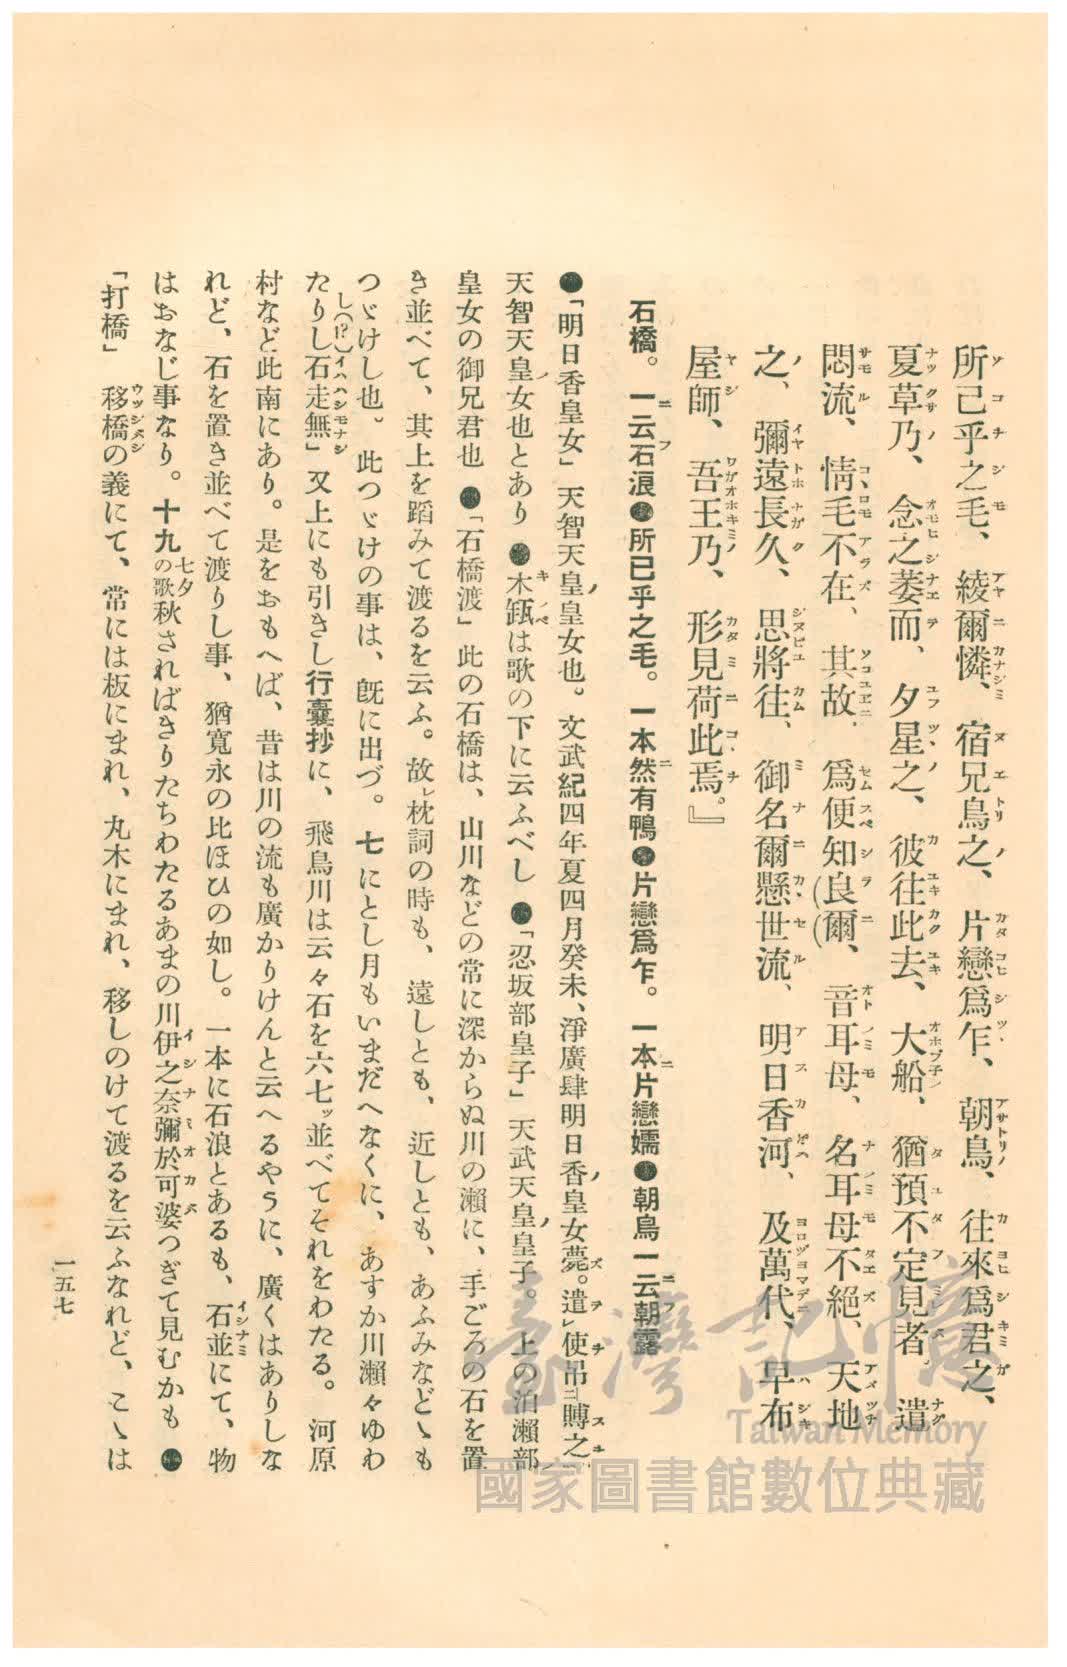 所己乎之毛、綾爾憐、宿兄鳥之、片戀爲乍、朝鳥、往來爲君之、
夏草乃、念之萎而、夕星之、彼往此去、大船、猶預不定見者、遣
悶流、情毛不在、其故、爲便知良爾、音耳母、名耳母不絕、天地
之、彌遠長久、思將往、御名爾懸世流、明日香河、及萬代、早布
屋師、吾王乃、形見荷此焉。』
石橋。一云石浪●所已乎之毛。一本然有鴨●片戀爲乍。一本片戀嬬●朝鳥一云朝露
●「明日香皇女」天智天皇ノ皇女也。文武紀四年夏四月癸未、淨廣肆明日香ノ皇女薨。遣レ使吊二賻之一
天智天皇ノ女也とあり●木𦈢は歌の下に云ふべし●「忍坂部皇子」天武天皇ノ皇子。上の泊瀨部
皇女の御兄君也●「石橋渡」此の石橋は、山川などの常に深からぬ川の瀨に、手ごろの石を置
き並べて、其上を蹈みて渡るを云ふ。故レ枕詞の時も、遠しとも、近しとも、あふみなどゝも
つゞけし也。此つゞけの事は、既に出づ。七にとし月もいまだへなくに、あすか川瀨々ゆわ
たりし石走無」又上にも引きし行囊抄に、飛鳥川は云々石を六七ッ並べてそれをわたる。河原
村など此南にあり。是をおもへば、昔は川の流も廣かりけんと云へるやうに、廣くはありしな
れど、石を置き並べて渡りし事、猶寬永の比ほひの如し。一本に石浪とあるも、石並にて、物
はおなじ事なり。十九七夕の歌秋さればきりたちわたるあまの川伊之奈彌於可婆つぎて見むかも●
「打橋」移橋の義にて、常には板にまれ、丸木にまれ、移しのけて渡るを云ふなれど、こゝは
一五七
臺灣記憶
Taiwan Memory
國家圖書館數位典藏